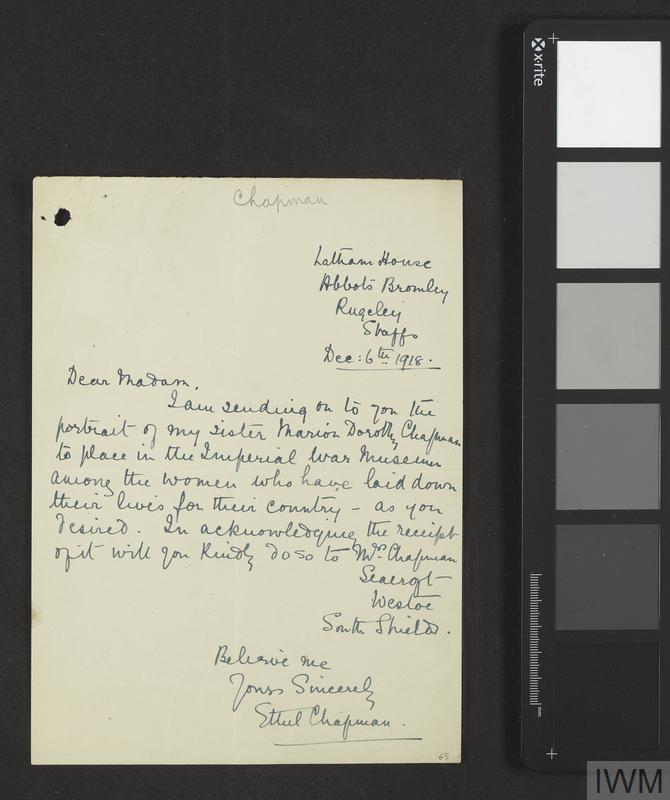 Chapman
Latham House
Abbots Bromley
Rugeley
Staffs
Dec: 6th 1918.
Dear Madam,
I am sending on to you the
portrait of my sister Marion Dorothy Chapman
to place in the Imperial War Museum
among the women who have laid down
their lives for their country – as you
desired. In acknowledging the receipt
of it will you kindly do so to Mrs Chapman
Seacroft
Westoe
South Shields.
Believe me
Yours Sincerely
Ethel Chapman.
65
x-rite
mm
IWM